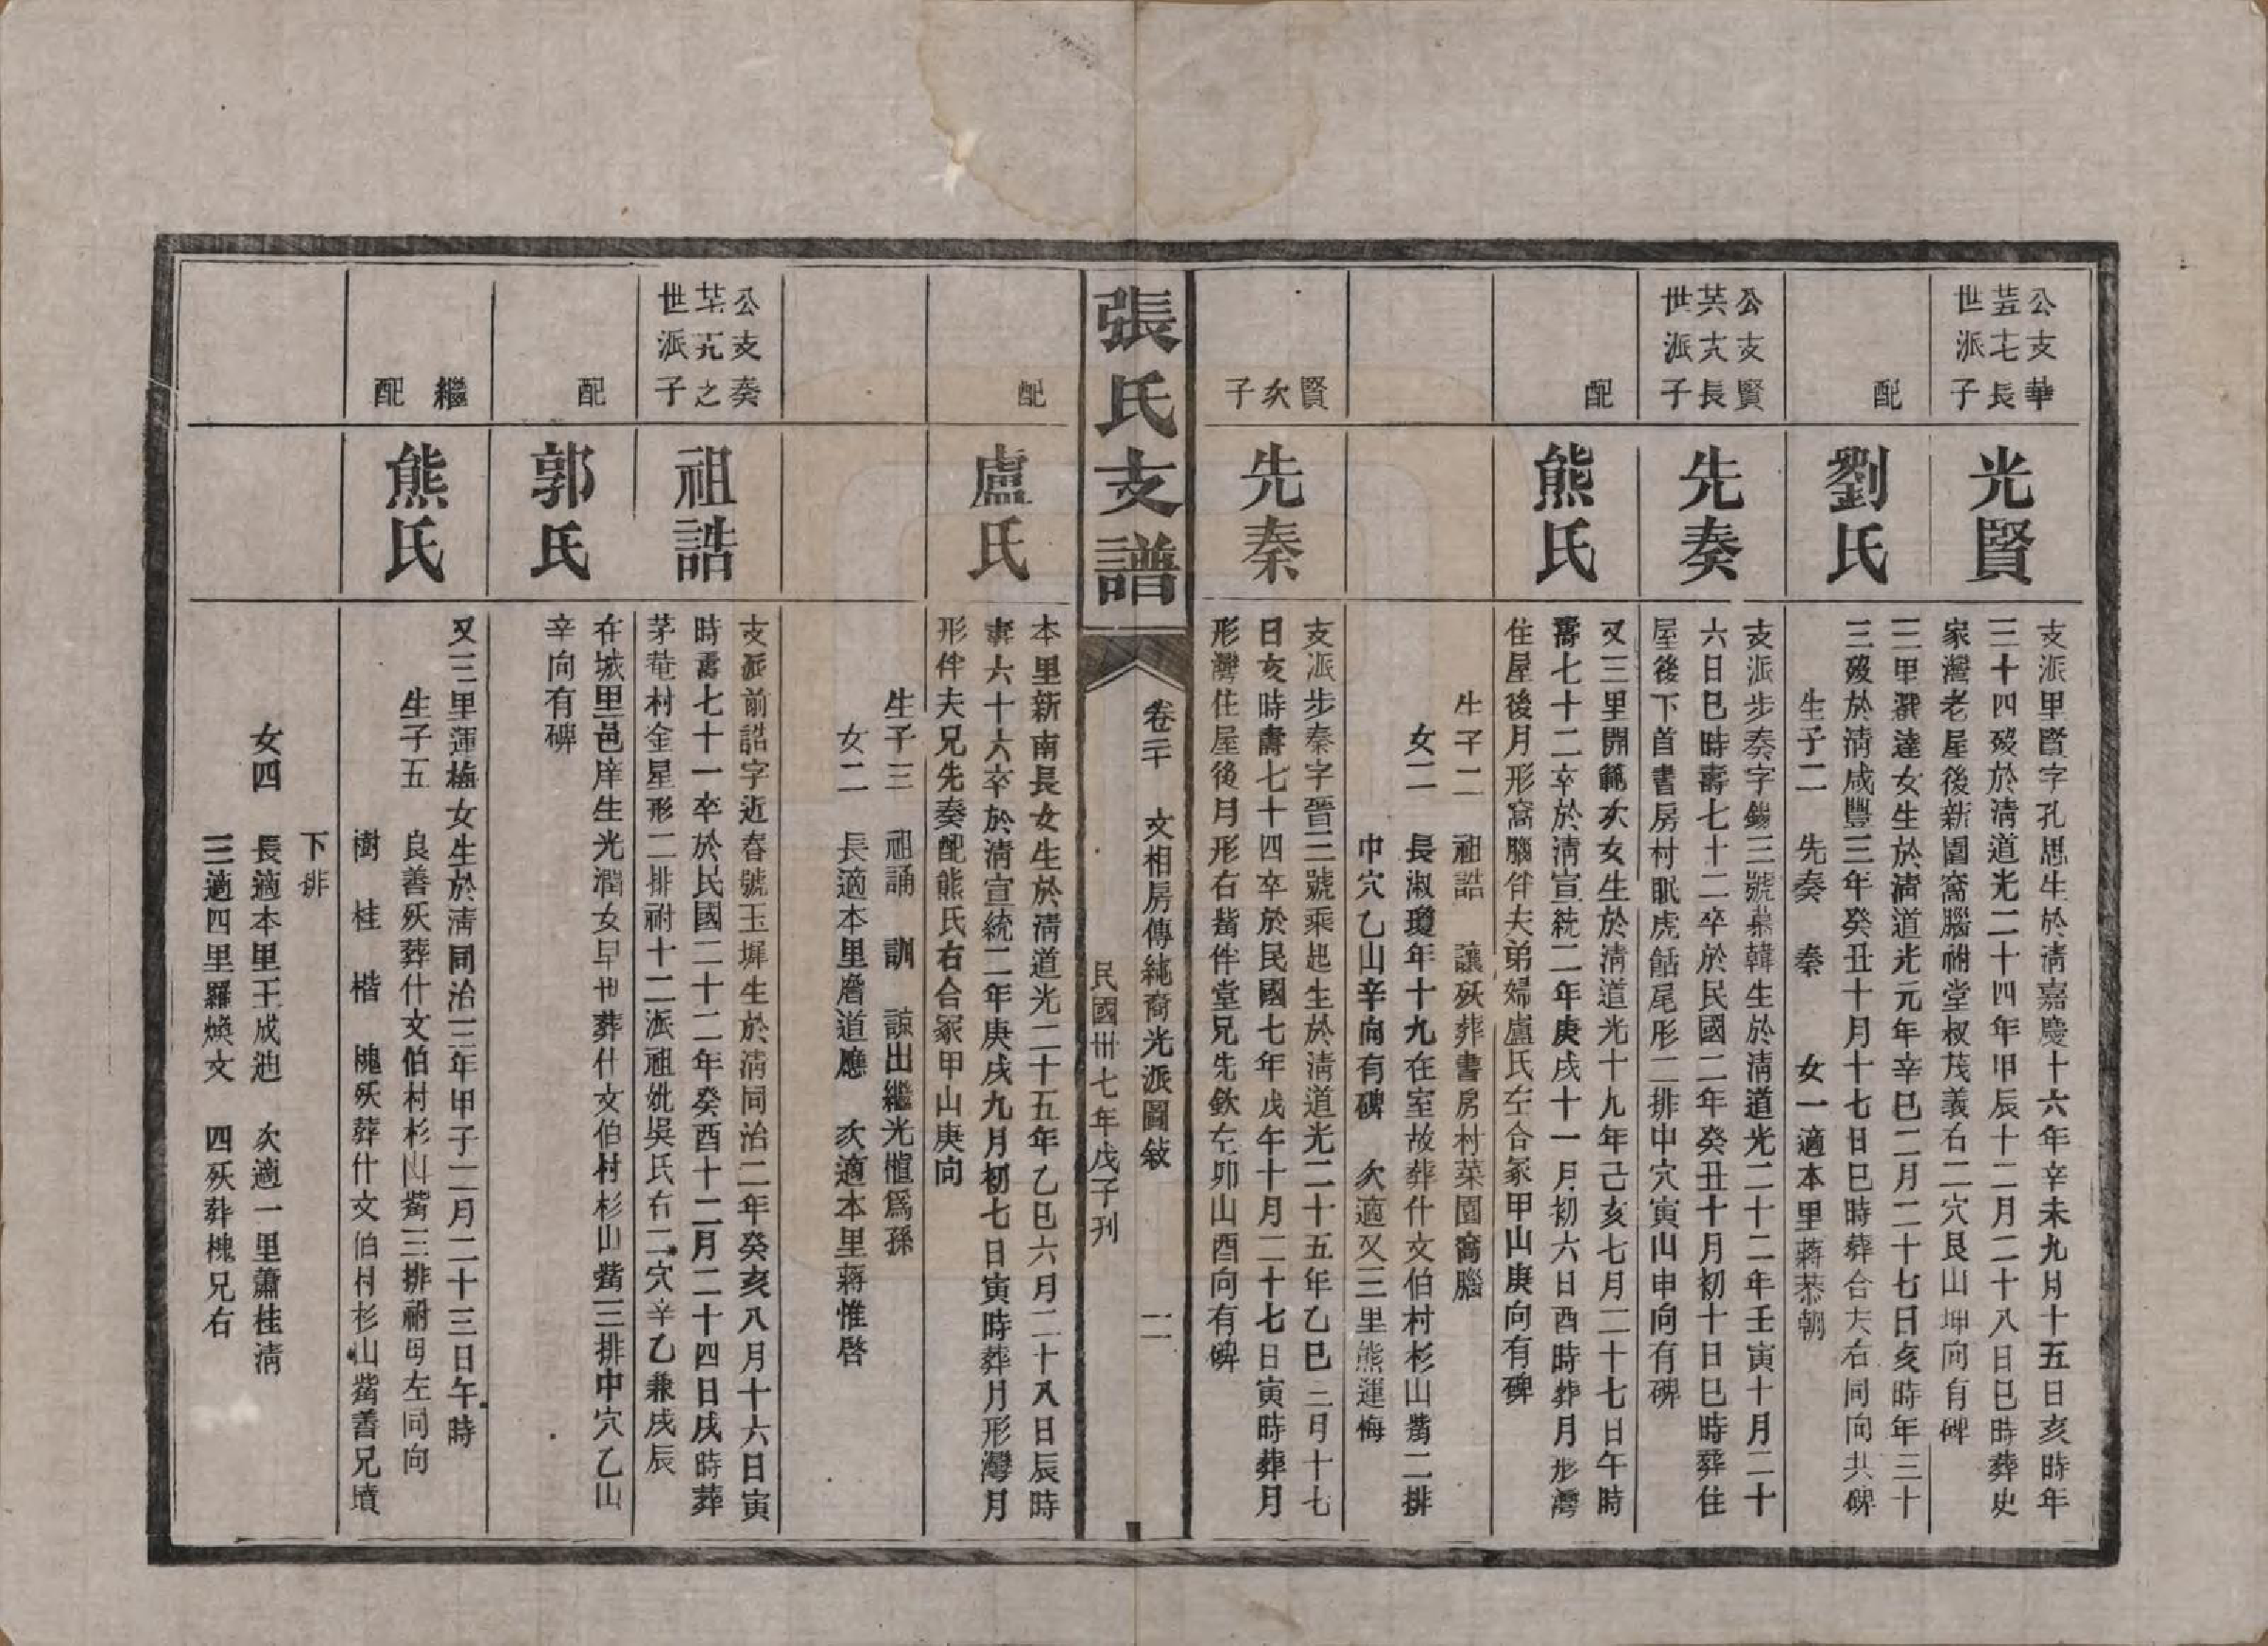 公支華
廿五十七長
世派子
光賢
支派里賢字孔思生於清嘉慶十六年辛未九月十五日亥時年
三十四歿於清道光二十四年甲辰十二月二十八日巳時葬史
家灣老屋後新園窩腦祔堂叔茂義右二穴艮山坤向有碑
配
劉氏
三甲澱達女生於清道光元年辛巳二月二十七日亥時年三十
三歿於清咸豐三年癸丑十月十七日巳時葬合夫右同向共碑
生子二 先奏 秦 女一適本里蔣恭朝
公支賢
廿六十八長
世派子
先奏
支派步奏字錫三號慕韓生於清道光二十二年壬寅十月二十
六日巳時壽七十二卒於民國二年癸丑十月初十日巳時葬住
屋後下首書房村眠虎餂尾形二排中穴寅山申向有碑
配
熊氏
又三里開範次女生於清道光十九年己亥七月二十七日午時
壽七十二卒於清宣統二年庚戌十一月初六日酉時葬月形灣
住屋後月形窩腦伴夫弟婦盧氏左合冢甲山庚向有碑
生子二 祖誥 讓殀葬書房村菜園窩腦
女二 長淑瓊年十九在室故葬什文伯村杉山嘴二排
中穴乙山辛向有碑 次適又三里熊運梅
賢次子
先秦
支派步秦字晉三號乘起生於清道光二十五年乙巳三月十七
日亥時壽七十四卒於民國七年戊午十月二十七日寅時葬月
形灣住屋後月形右嘴伴堂兄先欽左卯山酉向有碑
張氏支譜
卷二十 文相房傳純裔光派圖敍 二
民國卅七年戊子刊
配
盧氏
本里新南長女生於清道光二十五年乙巳六月二十八日辰時
壽六十六卒於清宣統二年庚戌九月初七日寅時葬月形灣月
形伴夫兄先奏配熊氏右合冢甲山庚向
生子三 祖誦 訓 諒出繼光愷爲孫
女二 長適本里詹道應 次適本里蔣惟啓
公支奏
廿七十九之
世派子
祖誥
支派前誥字近春號玉墀生於清同治二年癸亥八月十六日寅
時壽七十一卒於民國二十二年癸酉十二月二十四日戌時葬
茅菴村金星形二排祔十二派祖妣吳氏右二穴辛乙兼戌辰
配
郭氏
在城里邑庠生光潤女早世葬什文伯村杉山嘴三排中穴乙山
辛向有碑
繼配
熊氏
又三里運極女生於清同治三年甲子二月二十三日午時
生子五 良善殀葬什文伯村杉山嘴三排祔母左同向
樹 桂 楷 槐殀葬什文伯村杉山嘴善兄墳
下排
女四 長適本里王成池 次適一里蕭桂清
三適四里羅煥文 四殀葬槐兄右